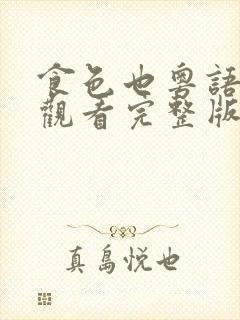 食色也粵語
觀看完整版
真島悅也